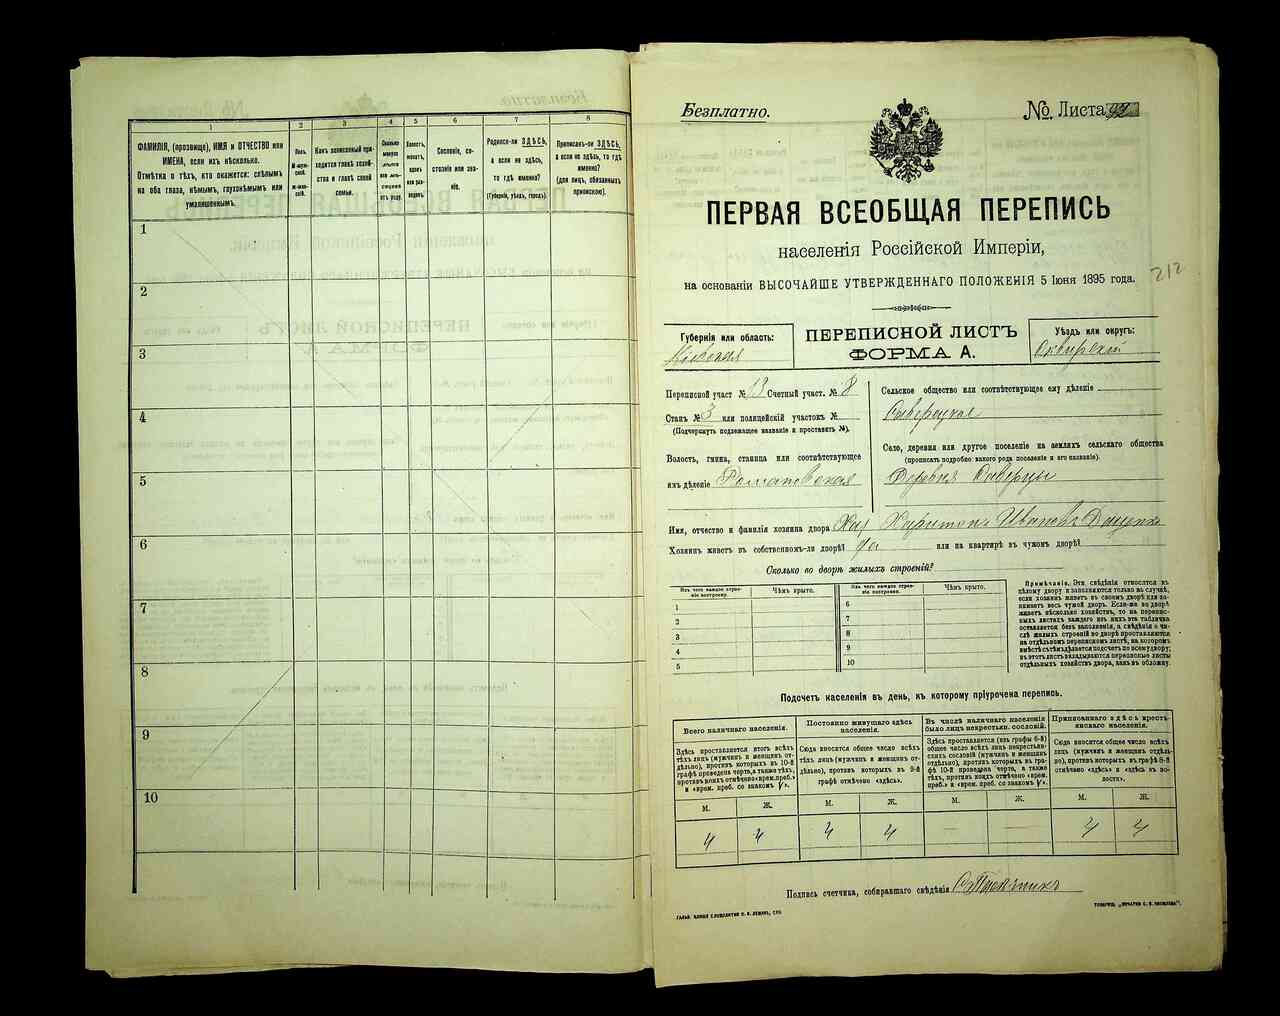 1
2
3
4
5
6
7
8
ФАМИЛІЯ, (прозвище), ИМЯ и ОТЧЕСТВО или
ИМЕНА, если ихъ нѣсколько.
Отмѣтка о тѣхъ, кто окажется: слѣпымъ
на оба глаза, нѣмымъ, глухонѣмымъ или
умалишеннымъ.
Полъ.
М-мужской.
Ж-женскій.
Какъ записанный приходится главѣ хозяйства и главѣ своей
семьи.
Сколько
минуло
лѣтъ
или мѣсяцевъ
отъ роду.
Холостъ,
женатъ,
вдовъ
или разведенъ.
Сословіе, состояніе или званіе.
Родился-ли ЗДѢСЬ,
а если не здѣсь,
то гдѣ именно?
(Губернія, уѣздъ, городъ).
Приписанъ-ли ЗДѢСЬ,
а если не здѣсь, то гдѣ
именно?
(для лицъ, обязанныхъ
припискою).
1
2
3
4
5
6
7
8
9
10
Безплатно.
№ Листа 92
ПЕРВАЯ ВСЕОБЩАЯ ПЕРЕПИСЬ
населенія Россійской Имперіи,
на основаніи ВЫСОЧАЙШЕ УТВЕРЖДЕННАГО ПОЛОЖЕНІЯ 5 Іюня 1895 года.
212
Губернія или область:
Кіевская
ПЕРЕПИСНОЙ ЛИСТЪ
ФОРМА А.
Уѣздъ или округъ:
Сквирскій
Переписной участ № 13 Счетный участ. № 8
Станъ № 3 или полицейскій участокъ №
(Подчеркнуть подлежащее названіе и проставить №).
Волость, гмина, станица или соотвѣтствующее
имъ дѣленіе Романовская
Сельское общество или соотвѣтствующее ему дѣленіе
Саверецкое
Село, деревня или другое поселеніе на земляхъ сельскаго общества
(прописать подробно какого рода поселеніе и его названіе).
Деревня Саверцы
Имя, отчество и фамилія хозяина двора Харитонъ Ивановъ
Хозяинъ живетъ въ собственномъ-ли дворѣ? да или на квартирѣ въ чужомъ дворѣ?
Сколько во дворѣ жилыхъ строеній?
Изъ чего каждое строеніе построено.
Чѣмъ крыто.
Изъ чего каждое строеніе построено.
Чѣмъ крыто.
1
2
3
4
5
6
7
8
9
10
Примѣчаніе. Эти свѣдѣнія относятся къ
цѣлому двору и заполняются только въ случаѣ,
если хозяинъ живетъ въ своемъ дворѣ или занимаетъ весь чужой дворъ. Если-же во дворѣ
живетъ нѣсколько хозяйствъ, то на переписныхъ листахъ каждаго изъ нихъ эта табличка
оставляется безъ заполненія, а свѣдѣнія о числѣ жилыхъ строеній во дворѣ проставляются
на отдѣльномъ переписномъ листѣ, на которомъ
вмѣстѣ съ тѣмъ дѣлается подсчетъ по всему двору;
въ этотъ листъ вкладываются переписные листы
отдѣльныхъ хозяйствъ двора, какъ въ обложку.
Подсчетъ населенія въ день, къ которому пріурочена перепись.
Всего наличнаго населенія.
Постоянно живущаго здѣсь
населенія.
Въ числѣ наличнаго населенія
было лицъ некрестьян. сословій.
Приписаннаго здѣсь крестьянскаго населенія.
Здѣсь проставляется итогъ всѣхъ
тѣхъ лицъ (мужчинъ и женщинъ отдѣльно), противъ которыхъ въ 10-й
графѣ проведена черта, а также тѣхъ,
противъ коихъ отмѣчено «врем. преб.»
и «врем. преб. со знакомъ V».
Сюда вносится общее число всѣхъ
тѣхъ лицъ (мужчинъ и женщинъ отдѣльно), противъ которыхъ въ 9-й
графѣ отмѣчено «здѣсь».
Здѣсь проставляется (изъ графы 6-й)
общее число всѣхъ лицъ некрестьянскихъ сословій (мужчинъ и женщинъ
отдѣльно), противъ которыхъ въ графѣ 10-й проведена черта, а также
тѣхъ, противъ коихъ отмѣчено «врем.
преб.» и «врем. преб. со знакомъ V».
Сюда вносится общее число всѣхъ
лицъ (мужчинъ и женщинъ отдѣльно), противъ которыхъ въ графѣ 8-й
отмѣчено «здѣсь» и «здѣсь въ волости».
М. Ж. М. Ж. М. Ж. М. Ж.
4 4 4 4 — — 4 4
Подпись счетчика, собиравшаго свѣдѣнія